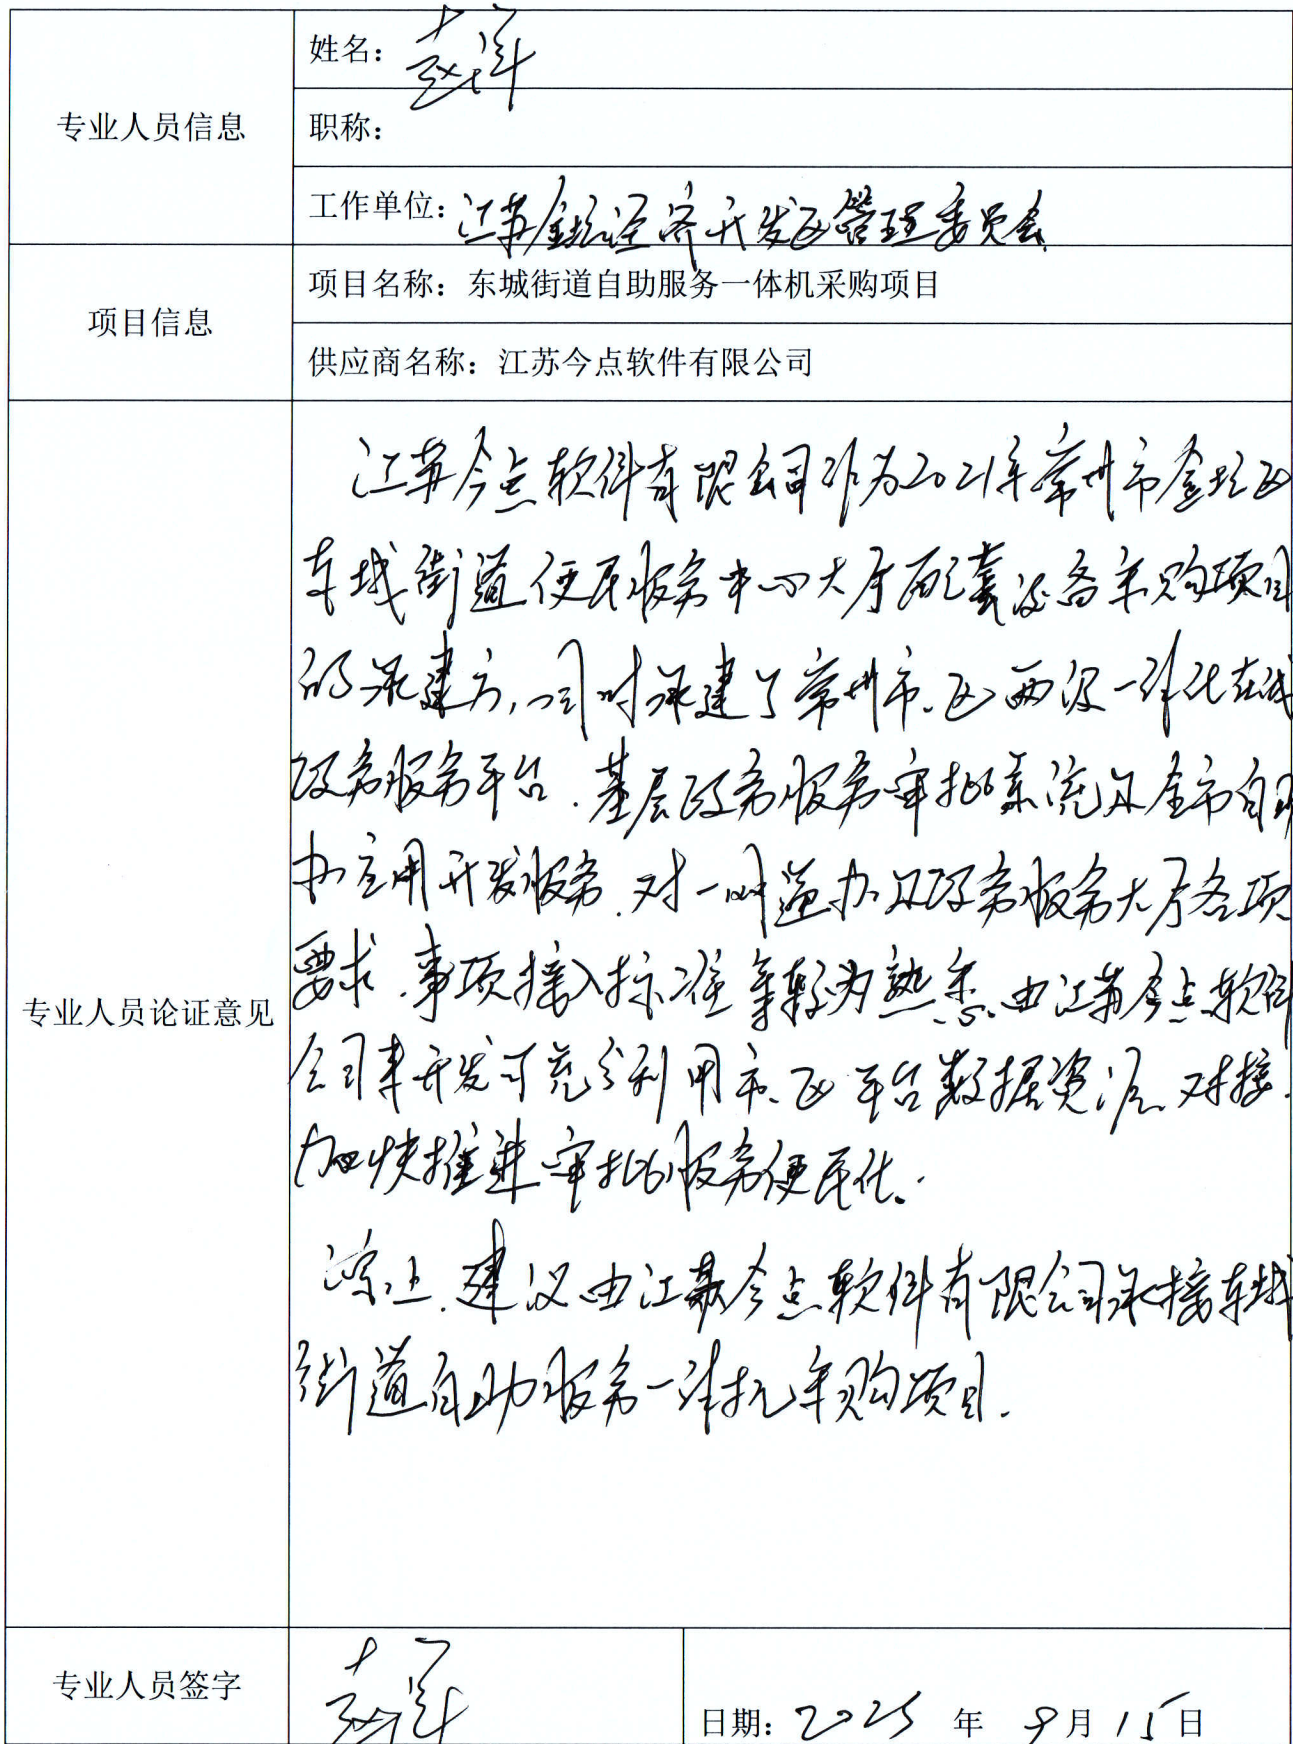 专业人员信息
姓名：
职称：
工作单位：江苏金坛经济开发区管理委员会
项目信息
项目名称：东城街道自助服务一体机采购项目
供应商名称：江苏今点软件有限公司
专业人员论证意见
江苏今点软件有限公司作为2021年常州市金坛区
东城街道便民服务中心大厅配套设备采购项目
的承建方，同时承建了常州市、区两级一体化在线
政务服务平台、基层政务服务审批系统及全市自助
办应用开发服务，对一网通办及政务服务大厅各项
要求、事项接入标准等较为熟悉，由江苏今点软件
公司来开发可充分利用市、区平台数据资源对接，
加快推进审批服务便民化。
综上，建议由江苏今点软件有限公司承接东城
街道自助服务一体机采购项目.
专业人员签字
日期：2025年9月15日